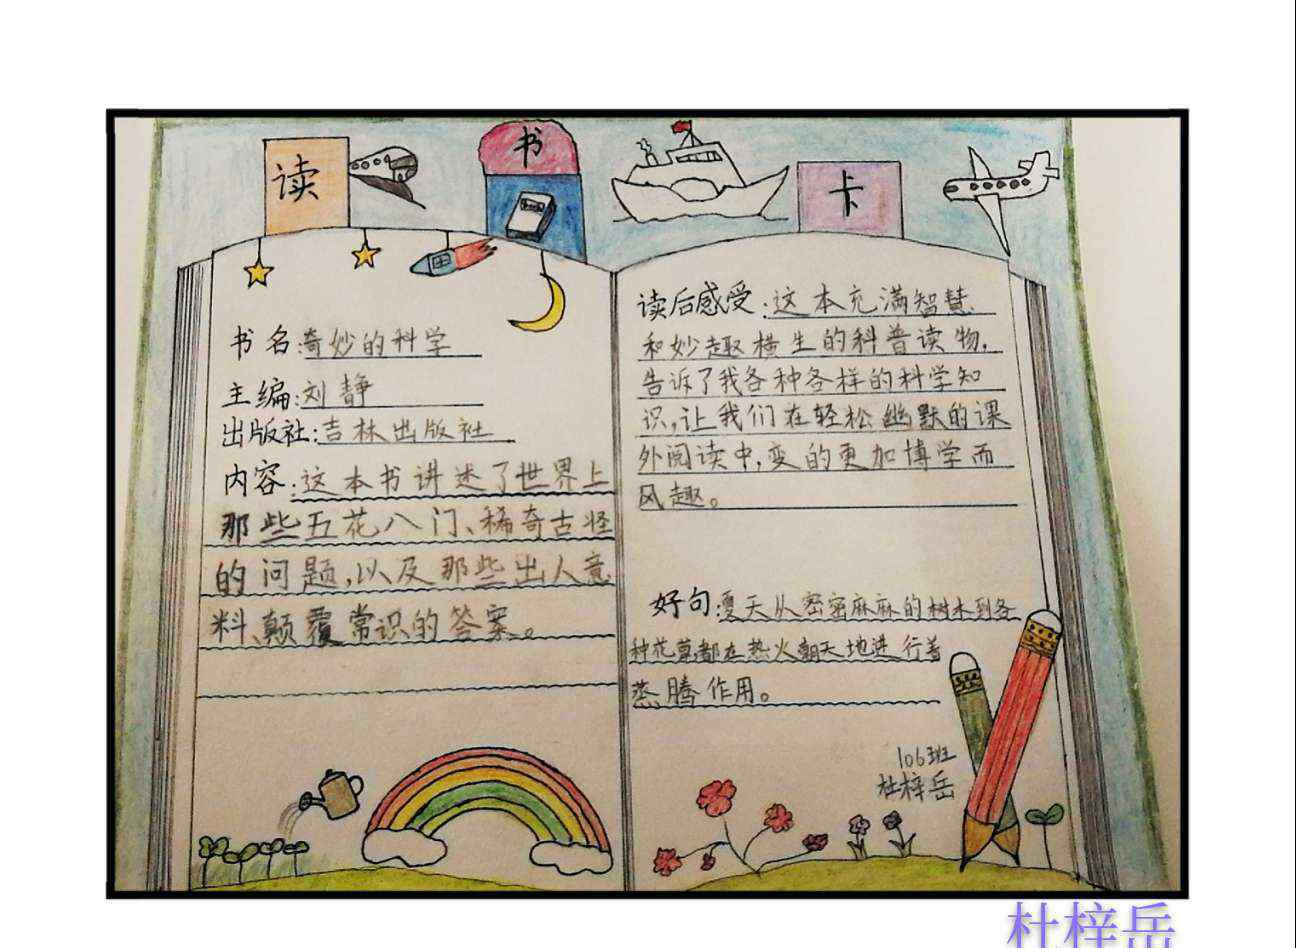 读
书
卡
书名:奇妙的科学
主编:刘静
出版社:吉林出版社
内容:这本书讲述了世界上
那些五花八门、稀奇古怪
的问题,以及那些出人意
料、颠覆常识的答案。
读后感受:这本充满智慧
和妙趣横生的科普读物,
告诉了我各种各样的科学知
识,让我们在轻松幽默的课
外阅读中,变的更加博学而
风趣。
好句:夏天从密密麻麻的树木到各
种花草都在热火朝天地进行着
蒸腾作用。
106班
杜梓岳
杜梓岳